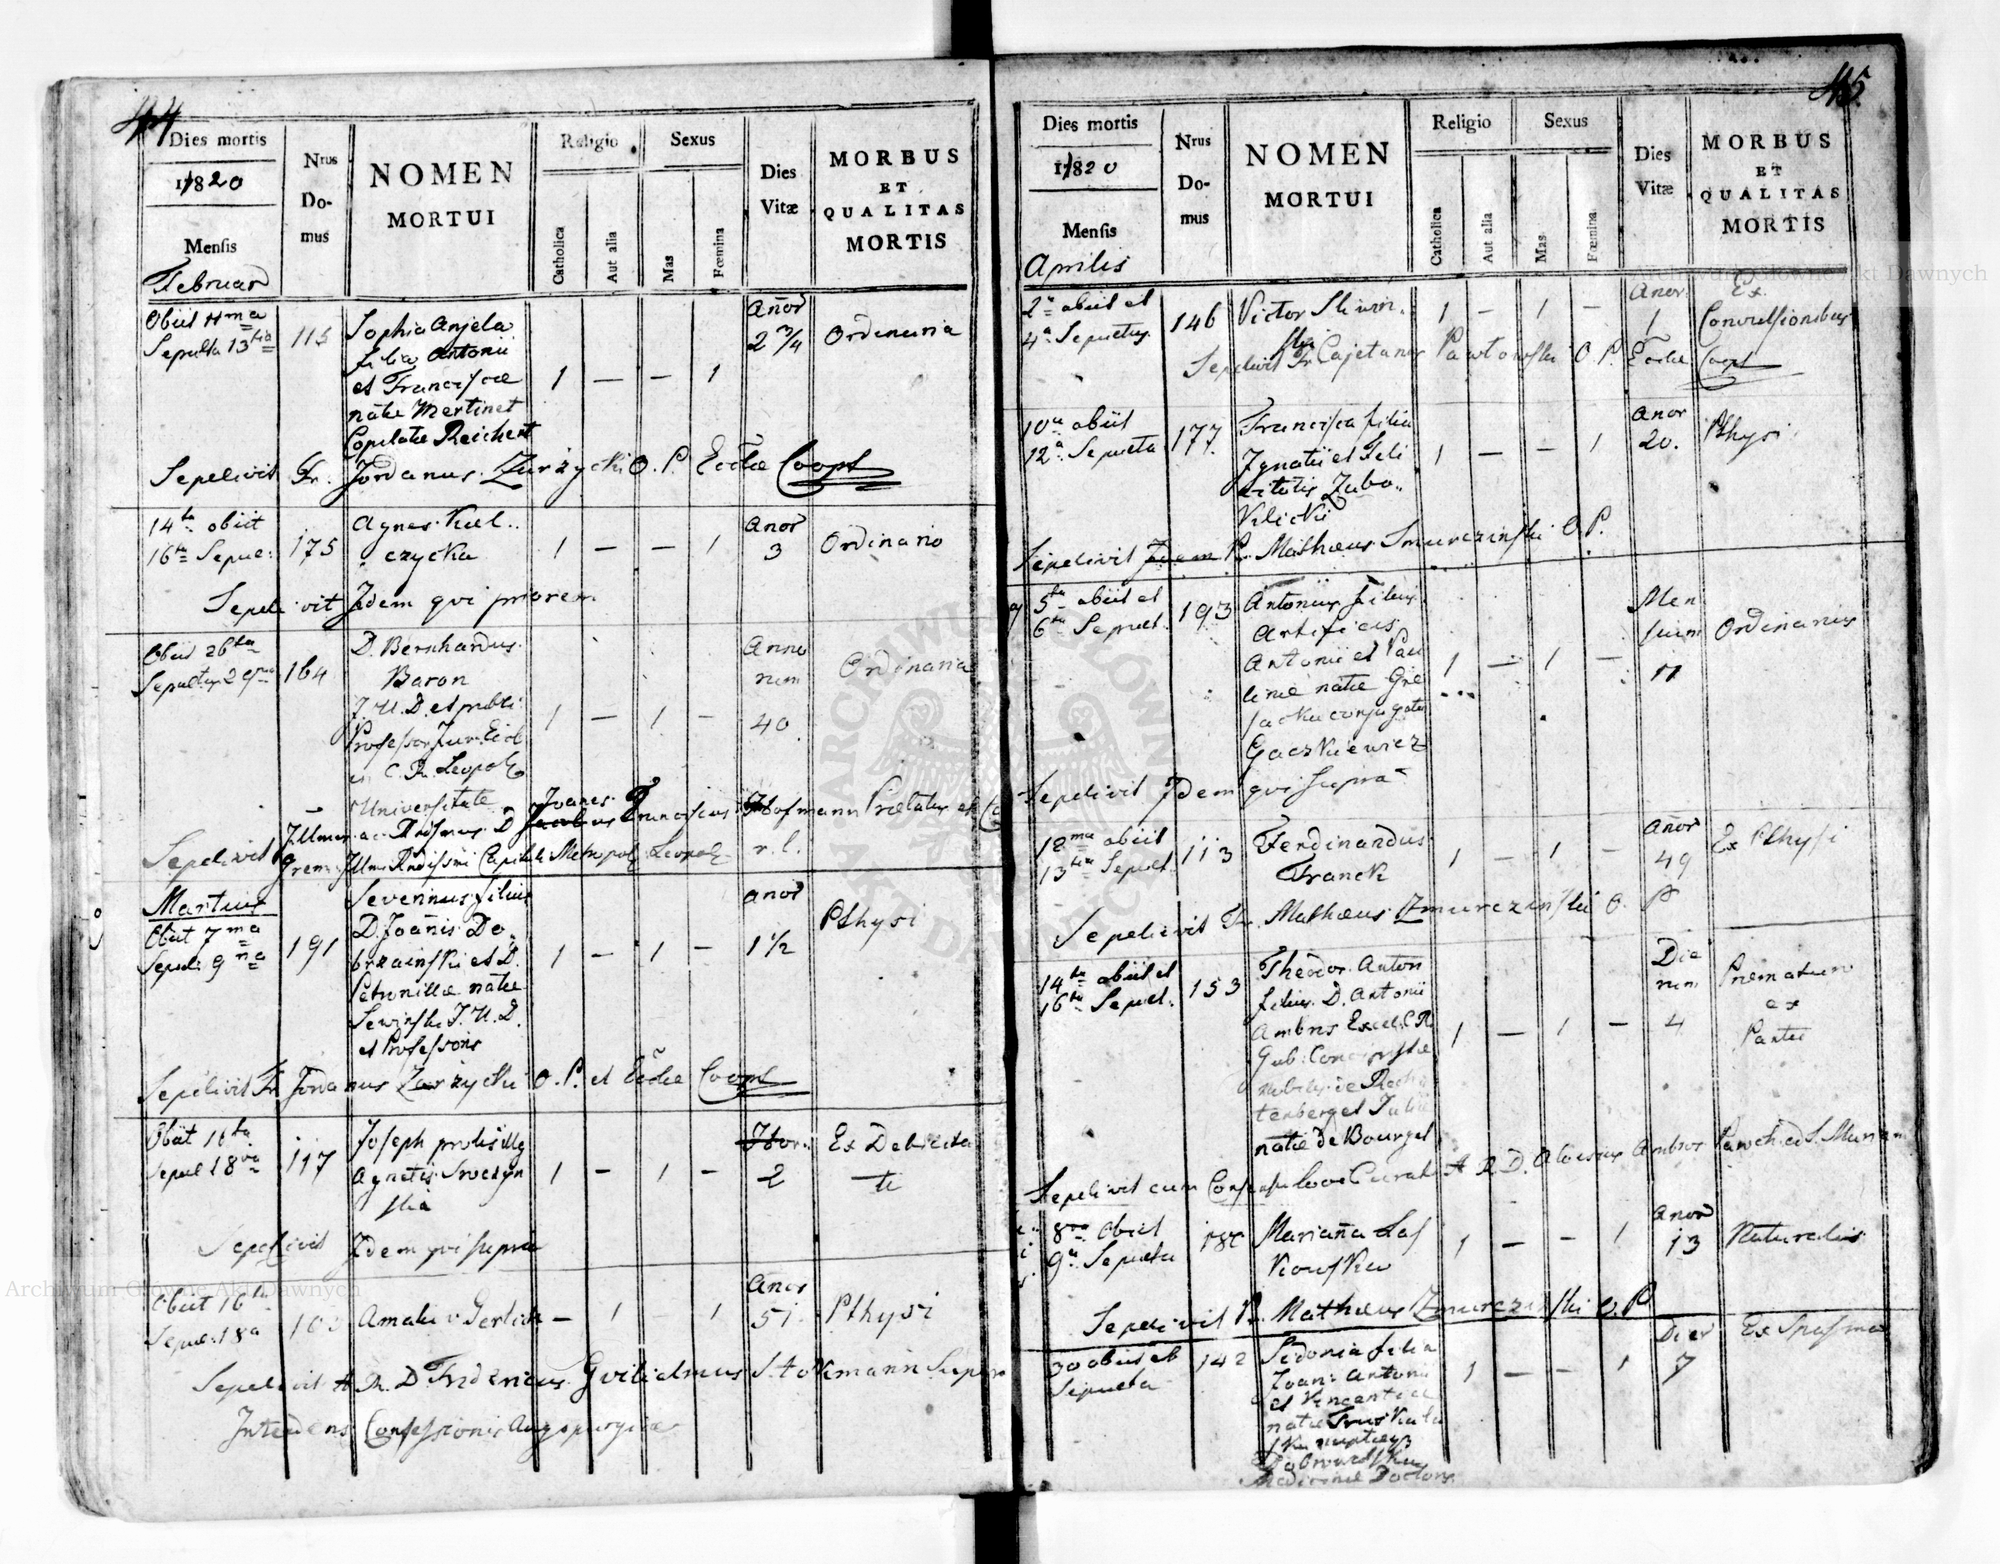 44
Dies mortis
1820
Mensis
Februar
Nrus
Do-
mus
NOMEN
MORTUI
Religio
Catholica
Aut alia
Sexus
Mas
Fœmina
Dies
Vitæ
MORBUS
ET
QUALITAS
MORTIS
Obiit 11ma
Sepulta 13tia
115
Sophia Anjela
filia Antonii
et Franciscæ
natæ Martinet
Copulatæ Reichert
1 — — 1
Anor
2 3/4
Ordinaria
Sepelivit Fr. Jordanus Zurzycki O. P. Ecclæ Coopr
14ta obiit
16ta Sepul:
175
Agnes Kul..
czycka
1 — — 1
Anor
3
Ordinario
Sepelivit Idem qvi priorem
Obiit 26ta
Sepultus 29na
164
D. Bernhardus
Baron
J. U. D. et publi:
Professor Jur. Eccl
in C. R. Leopol
Universitate
1 — 1 —
Anno
rum
40
Ordinaria
Sepelivit Illmus ac Rdssmus D Joanes Franciscus Hofmann Prælatus et
Grem. Illmi Rndissimi Capituli Metropol: Leopol r. l.
Martius
Obiit 7ma
Sepul: 9na
191
Severinus filius
D. Joanis Do
brzainski et D.
Petronillæ natæ
Sewinski J. U. D.
et Professoris
1 — 1 —
Anor
1 1/2
Pthysi
Sepelivit Fr Jordanus Zurzycki O. P. et Ecclæ Coopr
Obiit 16ta
Sepul 18va
117
Joseph proles illeg
Agnetis
1 — 1 —
2
Ex Debilita
te
Sepelivit Idem qvi supra
Obiit 16ta
Sepul: 18a
Amalia v Gerlich
— 1 1
Anor
51
Pthysi
Sepelivit A. R. D. Fridericus Gvilielmus Stokmann Super
Intendens Confessionis Augspurgicæ
45
Dies mortis
1820
Mensis
Aprilis
Nrus
Do-
mus
NOMEN
MORTUI
Religio
Catholica
Aut alia
Sexus
Mas
Fœmina
Dies
Vitæ
MORBUS
ET
QUALITAS
MORTIS
2a obiit et
4a Sepultus
146
Victor Sliwin
ski
1 — 1 —
Anor
1
Ex
Convulsionibus
Sepelivit Fr Cajetanus Pawlowski O. P. Ecclæ Coopr
10a obiit
12a Sepulta
177
Francisca filia
Ignatii et Feli
citatis Zubo..
Klicki
1 — — 1
Anor
20.
Pthysi
Sepelivit Idem P. Mathæus Smurczinski O. P.
5ta obiit et
6ta Sepult.
193
Antonius filius
Artificis
Antonii et Pau
linæ natæ Gre
conjugatæ
Gaczkiewicz
1 — 1 —
Men
sium
11
Ordinarius
Sepelivit Idem qvi supra
12ma obiit
13tia Sepult
113
Ferdinandus
Franck
1 — 1 —
Anor
49
Ex Pthysi
Sepelivit Fr. Mathæus Zmurczinski O. P
14ta obiit et
16ta Sepul.
153
Theodor Anton
filius D. Antonii
Ambros Excel. C. R.
Gub: Concipistæ
nobilis de Rech
terberg et Juliæ
natæ de Bourget
1 — 1 —
Die
rum
4
Præmaturo
ex
Partu
Sepelivit cum Consensu Loci Curati A. R. D. Aloisius Ambros Paroch. ad S. Martin
8va obiit
9a Sepulta
180
Mariana Las
kowska
1 — — 1
Anor
13
Naturalis
Sepelivit P. Mathæus Zmurczinski O. P
30 obiit et
Sepulta
142
Sidonia filia
Joan: Antonii
et Vincentiæ
natæ Truskola
ska nuptæ
Medicinæ Doctoris
1 — — 1
Dier
7
Ex Spasma
Archiwum Główne Akt Dawnych
Archiwum Główne Akt Dawnych
ARCHIWUM GŁÓWNE
AKT DAWNYCH